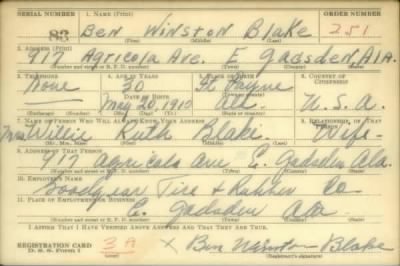 SERIAL NUMBER 1. NAME (Print) ORDER NUMBER
83 Ben Winston Blake 251
(First) (Middle) (Last)
2. ADDRESS (Print)
917 Agricola Ave. E Gadsden Ala.
(Number and street or R. F. D. number) (Town) (County) (State)
3. TELEPHONE 4. AGE IN YEARS 5. PLACE OF BIRTH 6. COUNTRY OF CITIZENSHIP
None 30 Ft Payne
DATE OF BIRTH
May 20, 1910 Ala U.S.A.
(Exchange) (Number) (Mo.) (Day) (Yr.) (State or country)
7. NAME OF PERSON WHO WILL ALWAYS KNOW YOUR ADDRESS 8. RELATIONSHIP OF THAT PERSON
Mrs Willie Ruth Blake Wife
(Mr., Mrs., Miss) (First) (Middle) (Last)
9. ADDRESS OF THAT PERSON
917 Agricola Ave E. Gadsden Ala.
(Number and street or R. F. D. number) (Town) (County) (State)
10. EMPLOYER'S NAME
Goodyear Tire & Rubber Co
11. PLACE OF EMPLOYMENT OR BUSINESS
E. Gadsden Ala
(Number and street or R. F. D. number) (Town) (County) (State)
I AFFIRM THAT I HAVE VERIFIED ABOVE ANSWERS AND THAT THEY ARE TRUE.
REGISTRATION CARD
D. S. S. Form 1 3A x Ben Winston Blake
(Registrant's signature)